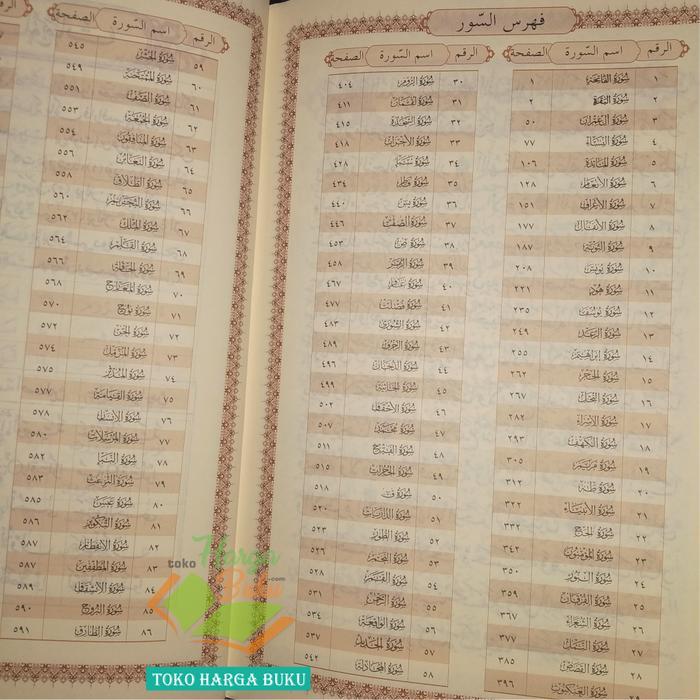 فهرس السّور
الرقم اسم السّورة الصفحة
١ سُورَة الفَاتِحَة ١
٢ سُورَة البَقَرَة ٢
٣ سُورَة آل عِمْرَان ٥٠
٤ سُورَة النِّسَاء ٧٧
٥ سُورَة المَائِدَة ١٠٦
٦ سُورَة الأَنْعَام ١٢٨
٧ سُورَة الأَعْرَاف ١٥١
٨ سُورَة الأَنْفَال ١٧٧
٩ سُورَة التَّوْبَة ١٨٧
١٠ سُورَة يُونُس ٢٠٨
١١ سُورَة هُود ٢٢١
١٢ سُورَة يُوسُف ٢٣٥
١٣ سُورَة الرَّعْد ٢٤٩
١٤ سُورَة إبْرَاهِيم ٢٥٥
١٥ سُورَة الحِجْر ٢٦٢
١٦ سُورَة النَّحْل ٢٦٧
١٧ سُورَة الإسْرَاء ٢٨٢
١٨ سُورَة الكَهْف ٢٩٣
١٩ سُورَة مَرْيَم ٣٠٥
٢٠ سُورَة طه ٣١٢
٢١ سُورَة الأَنْبِيَاء ٣٢٢
٢٢ سُورَة الحَج ٣٣٢
٢٣ سُورَة المُؤْمِنُون ٣٤٢
٢٤ سُورَة النُّور ٣٥٠
٢٥ سُورَة الفُرْقَان ٣٥٩
٢٦ سُورَة الشُّعَرَاء ٣٦٧
٢٧ سُورَة النَّمْل ٣٧٧
٢٨ سُورَة القَصَص ٣٨٥
٢٩ سُورَة العَنْكَبُوت ٣٩٦
الرقم اسم السّورة الصفحة
٣٠ سُورَة الرُّوم ٤٠٤
٣١ سُورَة لُقْمَان ٤١١
٣٢ سُورَة السَّجْدَة ٤١٥
٣٣ سُورَة الأَحْزَاب ٤١٨
٣٤ سُورَة سَبَأ ٤٢٨
٣٥ سُورَة فَاطِر ٤٣٤
٣٦ سُورَة يس ٤٤٠
٣٧ سُورَة الصَّافَّات ٤٤٦
٣٨ سُورَة ص ٤٥٣
٣٩ سُورَة الزُّمَر ٤٥٨
٤٠ سُورَة غَافِر ٤٦٧
٤١ سُورَة فُصِّلَت ٤٧٧
٤٢ سُورَة الشُّورَى ٤٨٣
٤٣ سُورَة الزُّخْرُف ٤٨٩
٤٤ سُورَة الدُّخَان ٤٩٦
٤٥ سُورَة الجَاثِيَة ٤٩٩
٤٦ سُورَة الأَحْقَاف ٥٠٢
٤٧ سُورَة مُحَمَّد ٥٠٧
٤٨ سُورَة الفَتْح ٥١١
٤٩ سُورَة الحُجُرَات ٥١٥
٥٠ سُورَة ق ٥١٨
٥١ سُورَة الذَّارِيَات ٥٢٠
٥٢ سُورَة الطُّور ٥٢٣
٥٣ سُورَة النَّجْم ٥٢٦
٥٤ سُورَة القَمَر ٥٢٨
٥٥ سُورَة الرَّحْمَن ٥٣١
٥٦ سُورَة الوَاقِعَة ٥٣٤
٥٧ سُورَة الحَدِيد ٥٣٧
٥٨ سُورَة المُجَادلَة ٥٤٢
الرقم اسم السّورة الصفحة
٥٩ سُورَة الحَشْر ٥٤٥
٦٠ سُورَة المُمْتَحنَة ٥٤٩
٦١ سُورَة الصَّف ٥٥١
٦٢ سُورَة الجُمُعَة ٥٥٣
٦٣ سُورَة المُنَافِقُون ٥٥٤
٦٤ سُورَة التَّغَابُن ٥٥٦
٦٥ سُورَة الطَّلَاق ٥٥٨
٦٦ سُورَة التَّحْرِيم ٥٦٠
٦٧ سُورَة المُلْك ٥٦٢
٦٨ سُورَة القَلَم ٥٦٤
٦٩ سُورَة الحَاقَّة ٥٦٦
٧٠ سُورَة المَعَارِج ٥٦٨
٧١ سُورَة نُوح ٥٧٠
٧٢ سُورَة الجِن ٥٧٢
٧٣ سُورَة المُزَّمِّل ٥٧٤
٧٤ سُورَة المُدَّثِّر ٥٧٥
٧٥ سُورَة القِيَامَة ٥٧٧
٧٦ سُورَة الإنْسَان ٥٧٨
٧٧ سُورَة المُرْسَلَات ٥٨٠
٧٨ سُورَة النَّبَأ ٥٨٢
٧٩ سُورَة النَّازِعَات ٥٨٣
٨٠ سُورَة عَبَس ٥٨٥
٨١ سُورَة التَّكْوِير ٥٨٦
٨٢ سُورَة الانْفِطَار ٥٨٧
٨٣ سُورَة المُطَفِّفِين ٥٨٧
٨٤ سُورَة الانْشِقَاق ٥٨٩
٨٥ سُورَة البُرُوج ٥٩٠
٨٦ سُورَة الطَّارِق ٥٩١
toko Harga Buku .com
TOKO HARGA BUKU